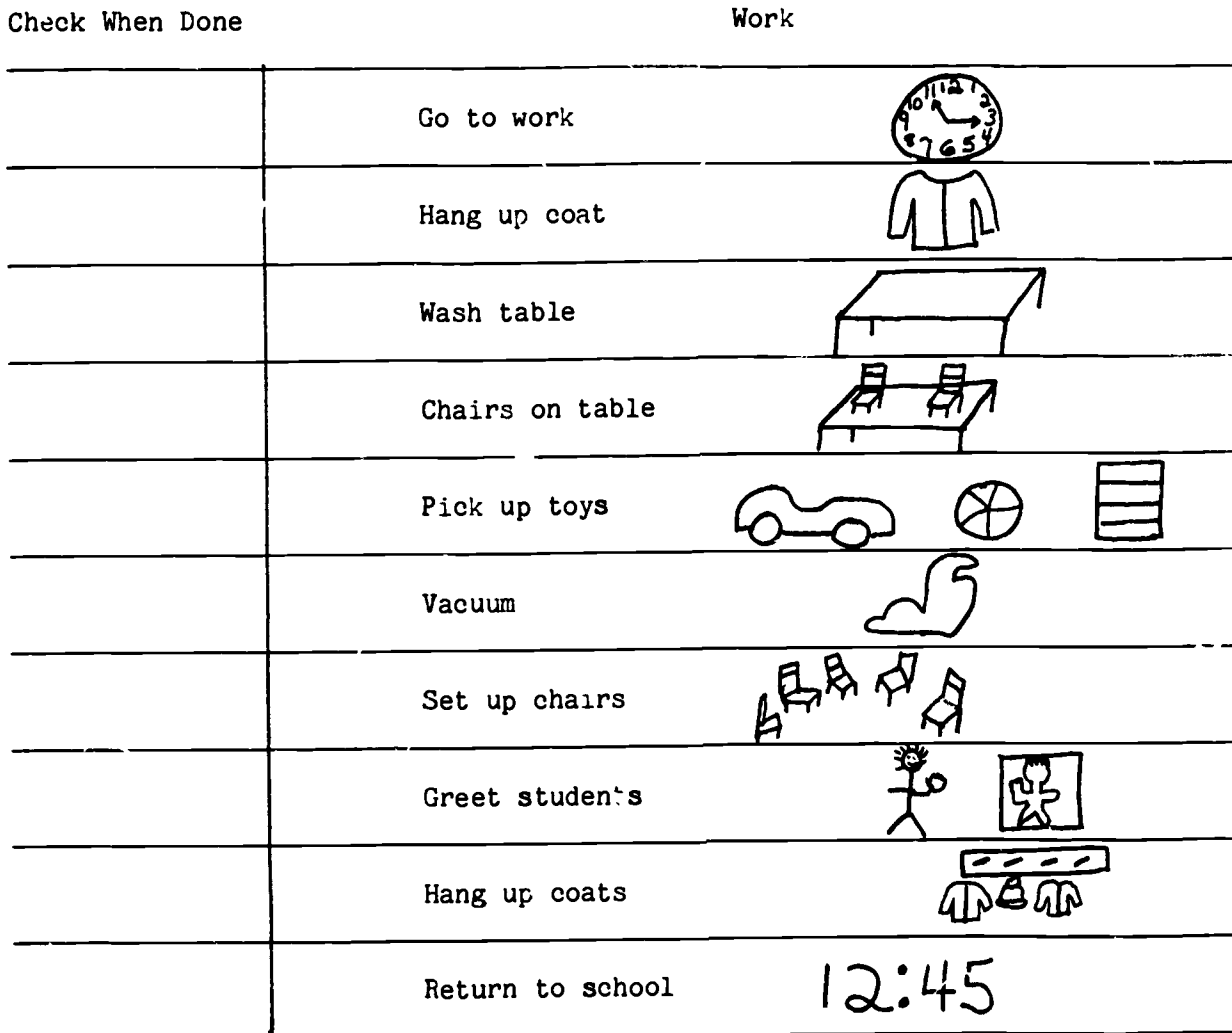 Check When Done Work
Go to work
11 12 1
10 2
9 3
8 4
7 6 5
Hang up coat
Wash table
Chairs on table
Pick up toys
Vacuum
Set up chairs
Greet students
Hang up coats
Return to school 12:45